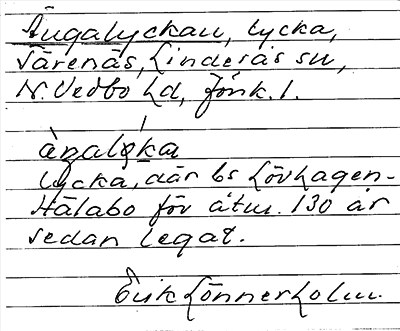 Ängalyckan, lycka,
Särenäs, Linderås sn,
N. Vedbo hd, Jönk. l.
lycka, där bs Lövhagen-
Hålabo för åtm. 130 år
sedan legat.
Erik Lönnerholm.